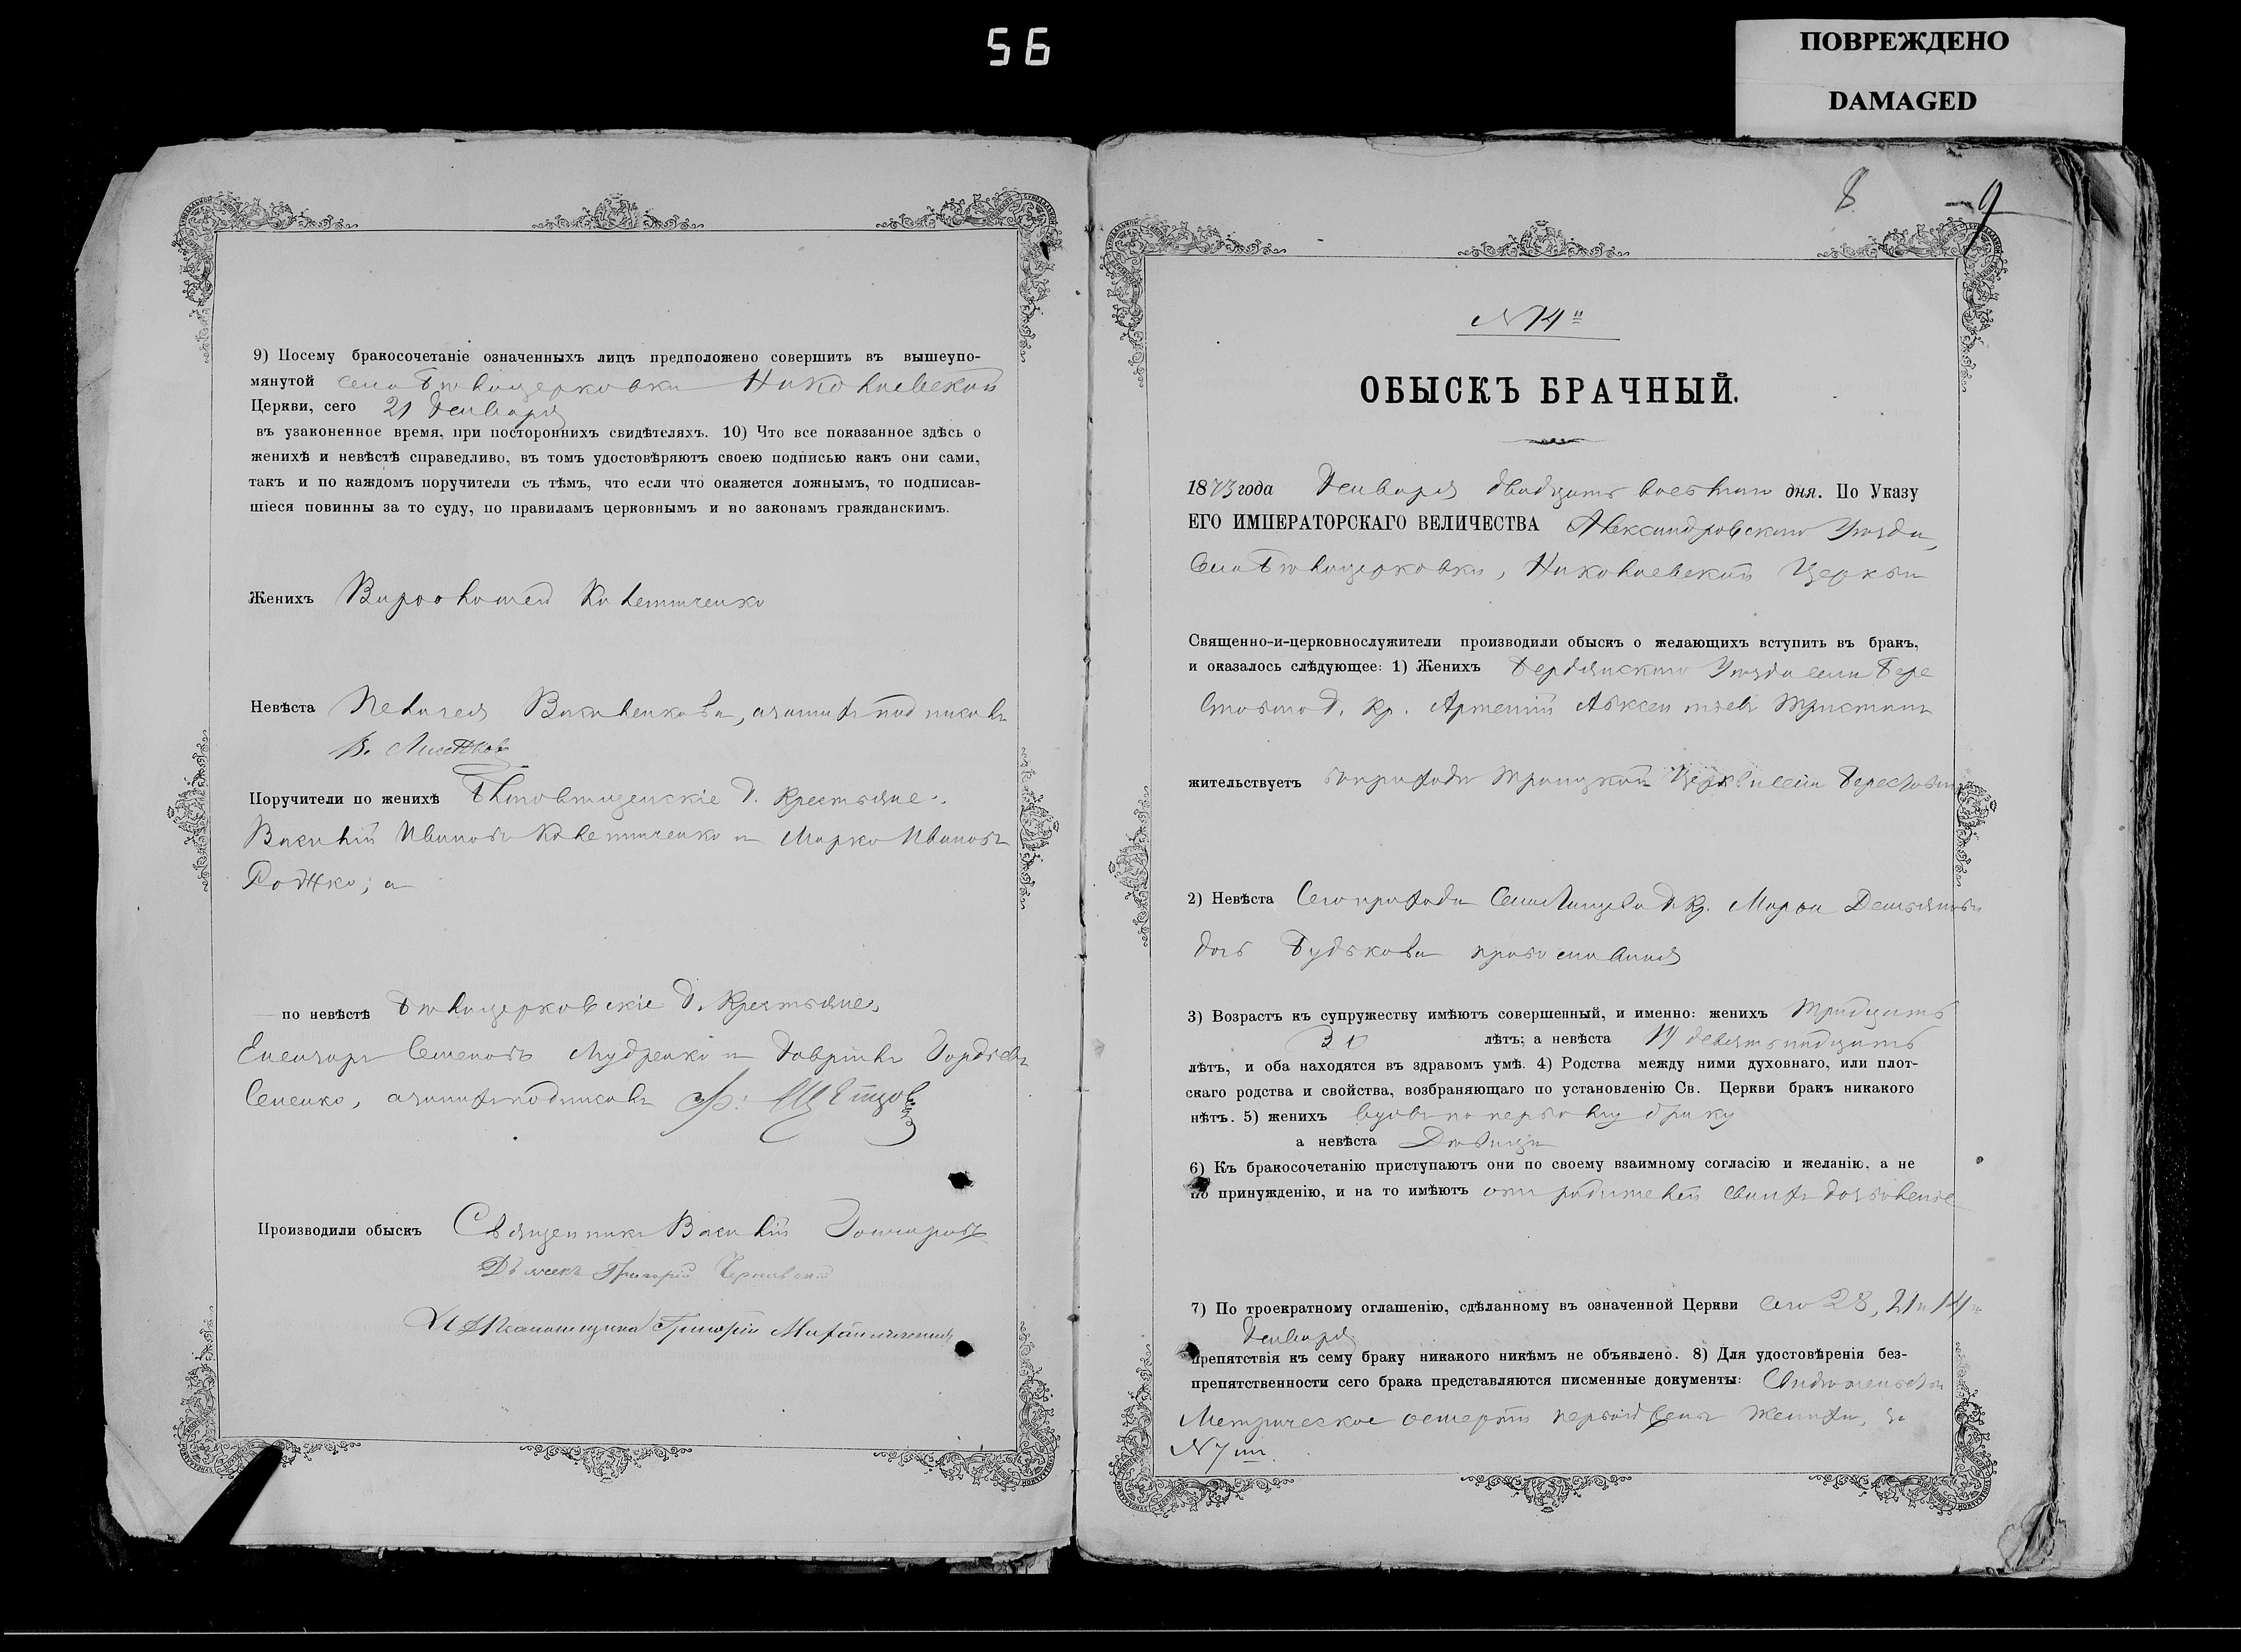 56
ПОВРЕЖДЕНО
DAMAGED
9) Посему бракосочетаніе означенныхъ лицъ предположено совершить въ вышеупо-
мянутой села Бѣлоцерковки Николаевской
Церкви, сего 21 Января
въ узаконенное время, при постороннихъ свидѣтеляхъ. 10) Что все показанное здѣсь о
женихѣ и невѣстѣ справедливо, въ томъ удостовѣряютъ своею подписью какъ они сами,
такъ и по каждомъ поручители съ тѣмъ, что если что окажется ложнымъ, то подписав-
шіеся повинны за то суду, по правиламъ церковнымъ и по законамъ гражданскимъ.
Женихъ Варфоломей
Невѣста Пелагея Василенкова, а за нихъ подписалъ
В.
Поручители по женихѣ д. Крестьяне
Василій Ивановъ и Марко Ивановъ
Рожко; а
по невѣстѣ Бѣлоцерковскіе д. Крестьяне
Елеазаръ Семеновъ Мудренко и Гаврiилъ Гордѣевъ
Сененко, а за нихъ подписалъ
Производили обыскъ Священникъ Василій Гончаровъ
Дьячекъ Григорій
Григорій
8 9
N 14й
ОБЫСКЪ БРАЧНЫЙ.
1873 года Января двадцать восьмаго дня. По Указу
ЕГО ИМПЕРАТОРСКАГО ВЕЛИЧЕСТВА Александровскаго Уѣзда,
Села Бѣлоцерковки, Николаевской Церкви
Священно-и-церковнослужители производили обыскъ о желающихъ вступить въ бракъ,
и оказалось слѣдующее: 1) Женихъ Бердянскаго Уѣзда села Бере
стоваго д. кр. Артемій Авксентіевъ
жительствуетъ въ приходѣ Троицкой Церкви села Берестоваго
2) Невѣста Сего прихода села д. кр. Марѳа Демьянова
дочь Будькова православная
3) Возрастъ къ супружеству имѣютъ совершенный, и именно: женихъ тридцать
30 лѣтъ; а невѣста 19 девятнадцать
лѣтъ, и оба находятся въ здравомъ умѣ. 4) Родства между ними духовнаго, или плот-
скаго родства и свойства, возбраняющаго по установленію Св. Церкви бракъ никакого
нѣтъ. 5) женихъ вдовъ по первому браку
а невѣста Дѣвица
6) Къ бракосочетанію приступаютъ они по своему взаимному согласію и желанію, а не
по принужденію, и на то имѣютъ отъ родителей своихъ дозволеніе
7) По троекратному оглашенію, сдѣланному въ означенной Церкви сего 28, 21 и 14
Января
препятствія къ сему браку никакого никѣмъ не объявлено. 8) Для удостовѣренія без-
препятственности сего брака представляются писменные документы: Свидѣтельство
Метрическое о смерти первой жены Жениха, за
N 7